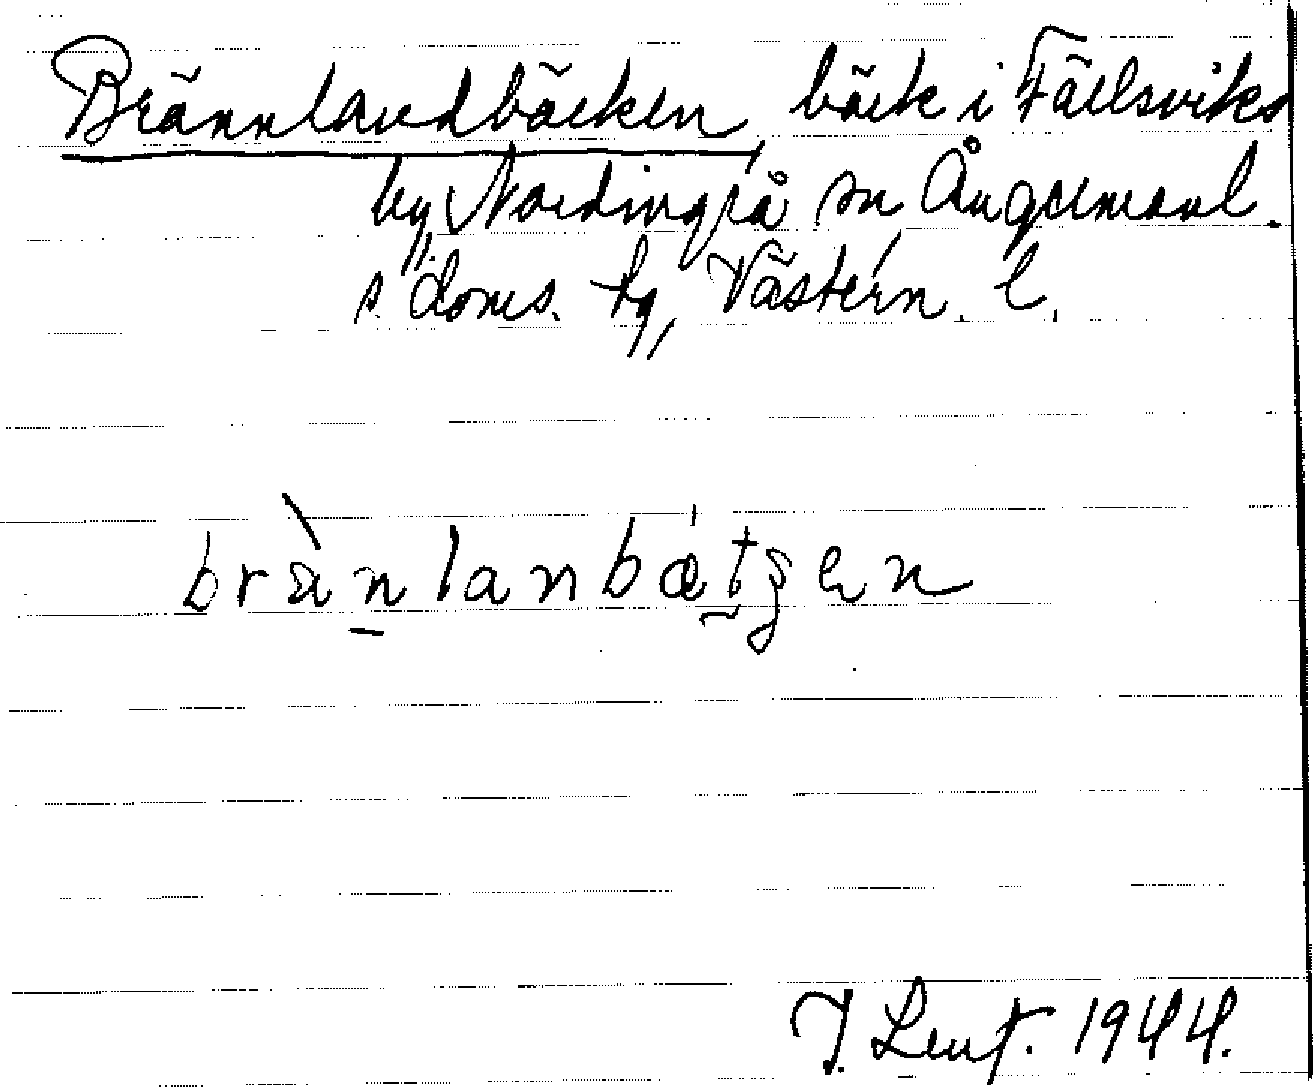 Brännlandbäcken, bäck i Fällsviks
by, Nordingrå sn Ångermanl.
s. doms. tg, Västern. l.
brànlanbætʂen
J. Lent. 1944.